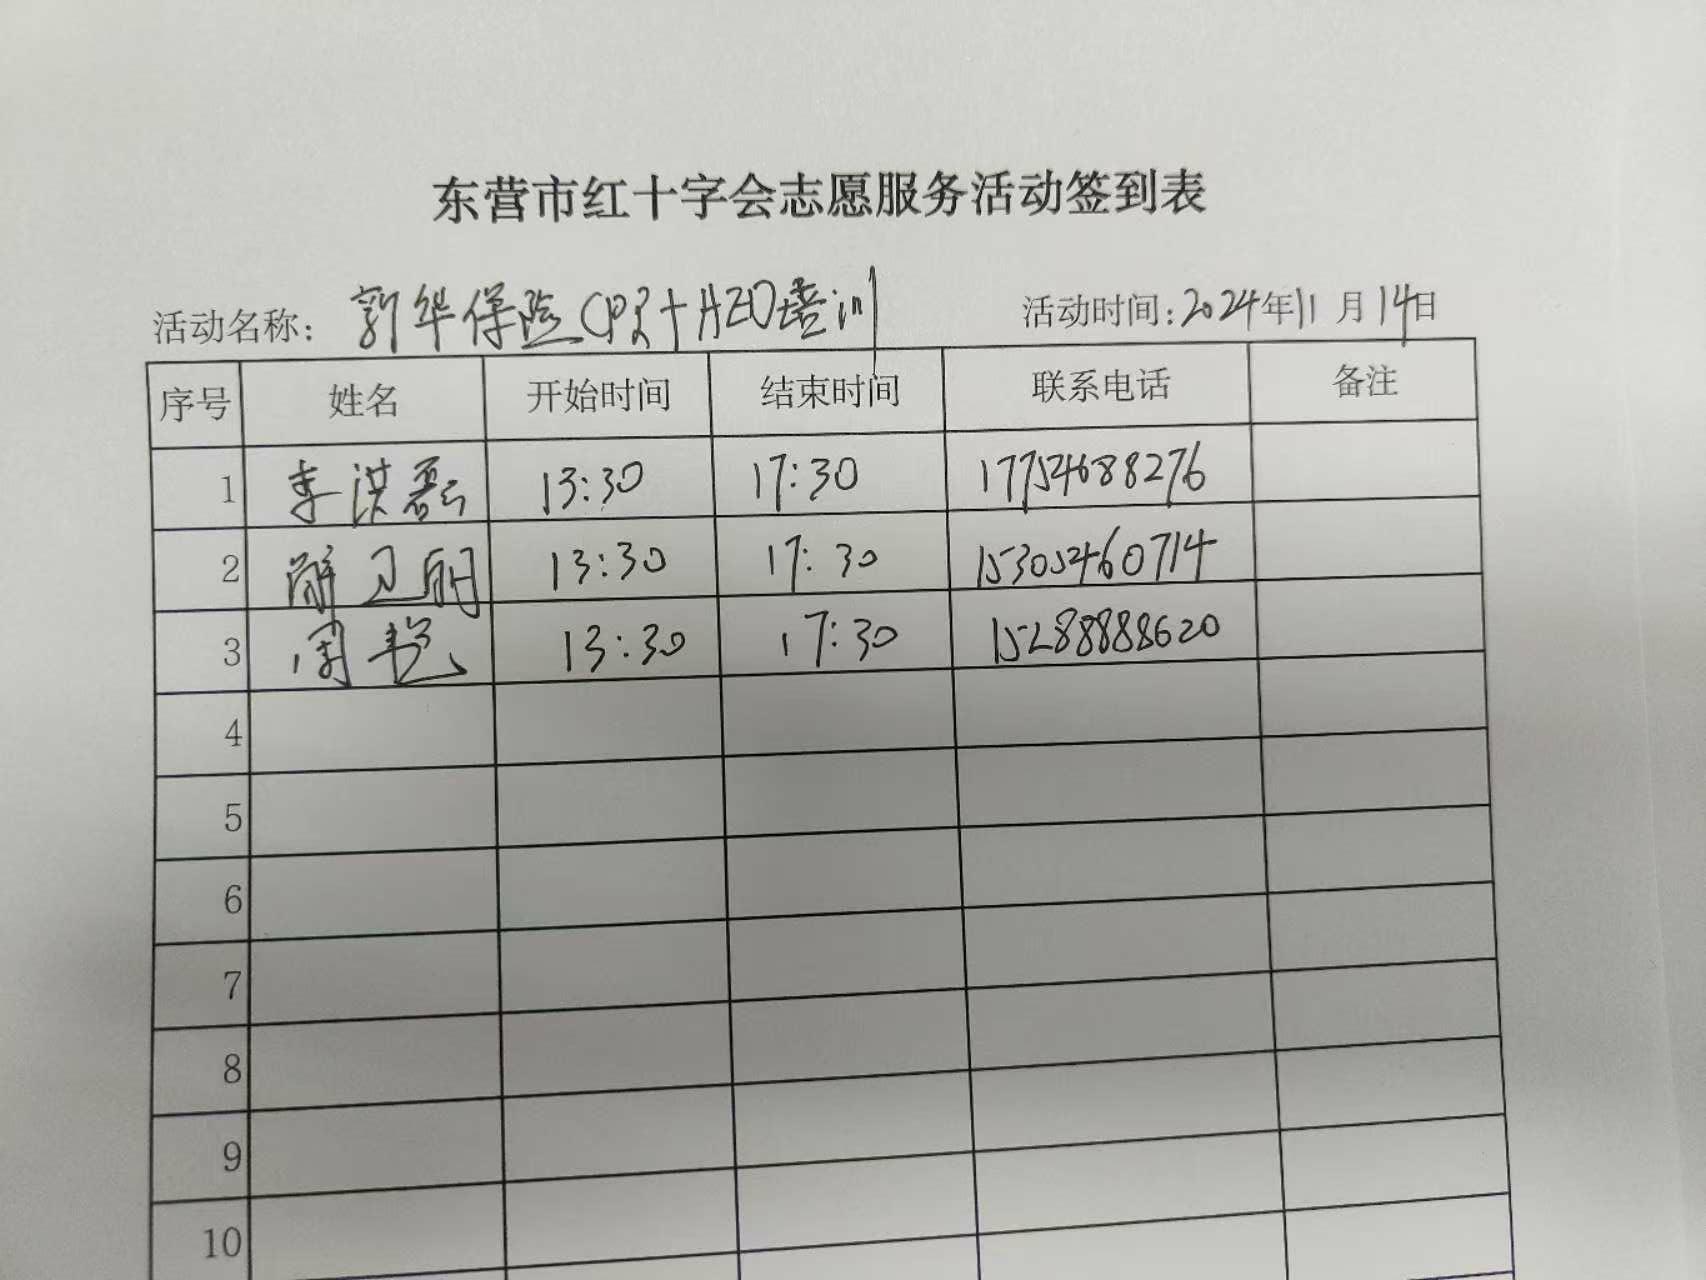 东营市红十字会志愿服务活动签到表
活动名称: 新华保险CPR+AED培训 活动时间:2024年11月14日
序号 姓名 开始时间 结束时间 联系电话 备注
1 李洪磊 13:30 17:30 17754688276
2 解卫丽 13:30 17:30 15305460714
3 周艳 13:30 17:30 15288888620
4
5
6
7
8
9
10